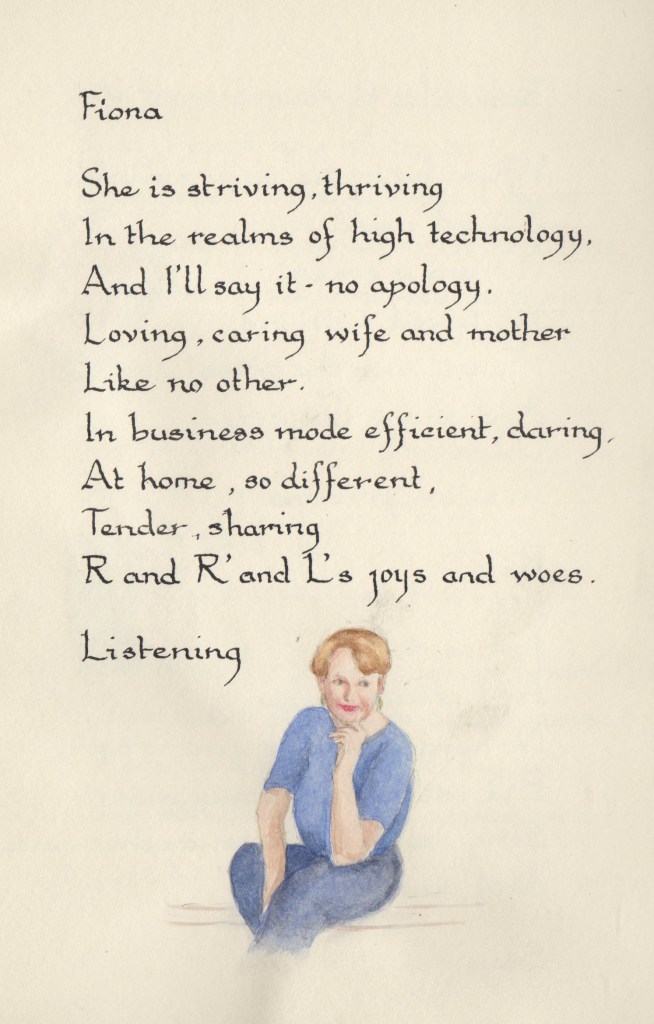 Fiona
She is striving, thriving
In the realms of high technology,
And I'll say it - no apology.
Loving, caring wife and mother
Like no other.
In business mode efficient, daring,
At home, so different,
Tender, sharing
R and R' and L's joys and woes.
Listening